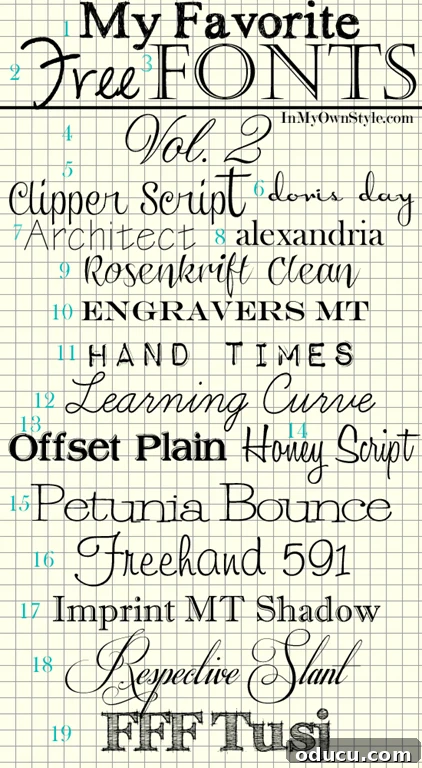 1 My Favorite
2 Free 3 FONTS
InMyOwnStyle.com
4 Vol. 2
5 Clipper Script 6 doris day
7 Architect 8 alexandria
9 Rosenkrift Clean
10 ENGRAVERS MT
11 HAND TIMES
12 Learning Curve
13 Offset Plain 14 Honey Script
15 Petunia Bounce
16 Freehand 591
17 Imprint MT Shadow
18 Respective Slant
19 FFF Tusj
oducu.com